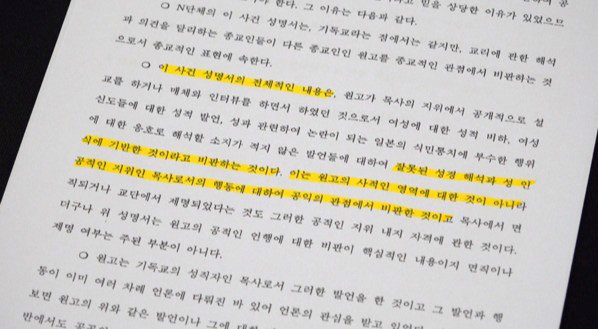 고 믿을 상당한 이유가 있었으므
그 이유는 다음과 같다.
❍ N단체의 이 사건 성명서는, 기독교라는 점에서는 같지만, 교리에 관한 해석
과 의견을 달리하는 종교인들이 다른 종교인인 원고를 종교적인 관점에서 비판하는 것
으로서 종교적인 표현에 속한다.
❍ 이 사건 성명서의 전체적인 내용은, 원고가 목사의 지위에서 공개적으로 설
교를 하거나 매체와 인터뷰를 하면서 하였던 것으로서 여성에 대한 성적 비하, 여성
신도들에 대한 성적 발언, 성과 관련하여 논란이 되는 일본의 식민통치에 부수한 행위
에 대한 옹호로 해석할 소지가 적지 않은 발언들에 대하여 잘못된 성경 해석과 성 인
식에 기반한 것이라고 비판하는 것이다. 이는 원고의 사적인 영역에 대한 것이 아니라
공적인 지위인 목사로서의 행동에 대하여 공익의 관점에서 비판한 것이고 목사에서 면
직되거나 교단에서 제명되었다는 것도 그러한 공적인 지위 내지 자격에 관한 것이다.
더구나 위 성명서는 원고의 공적인 언행에 대한 비판이 핵심적인 내용이지 면직이나
제명 여부는 주된 부분이 아니다.
❍ 원고는 기독교의 성직자인 목사로서 그러한 발언을 한 것이고 그 발언과 행
동이 이미 여러 차례 언론에 다뤄진 바 있어 언론의 관심을 받고 있었다.
보면 원고의 위와 같은 발언이나 그에 대한